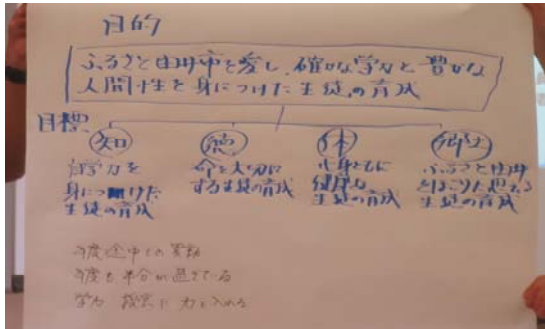 目的
ふるさと田川市を愛し、確かな学力と豊かな
人間性を身につけた生徒の育成
目標
知
学力を
身につけた
生徒の育成
徳
命を大切に
する生徒の育成
体
心身ともに
健康な
生徒の育成
郷土
ふるさと田川
を誇りに思える
生徒の育成
年度途中での異動
年度も半分が過ぎている
学力 授業に力を入れる